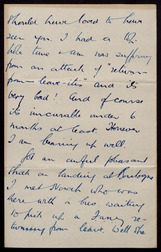 should have loved to have
seen you. I had a te-
time & am was suffering
from an attack of "return-
from-leave-itis" and its
very bad! And of course
its incurable under 6
months at least. However
I am bearing up well.
an awful pleasant
on landing at Boulogne
I met who was
here with a bus waiting
to pick up a Nancy re-
turning from leave. Well she